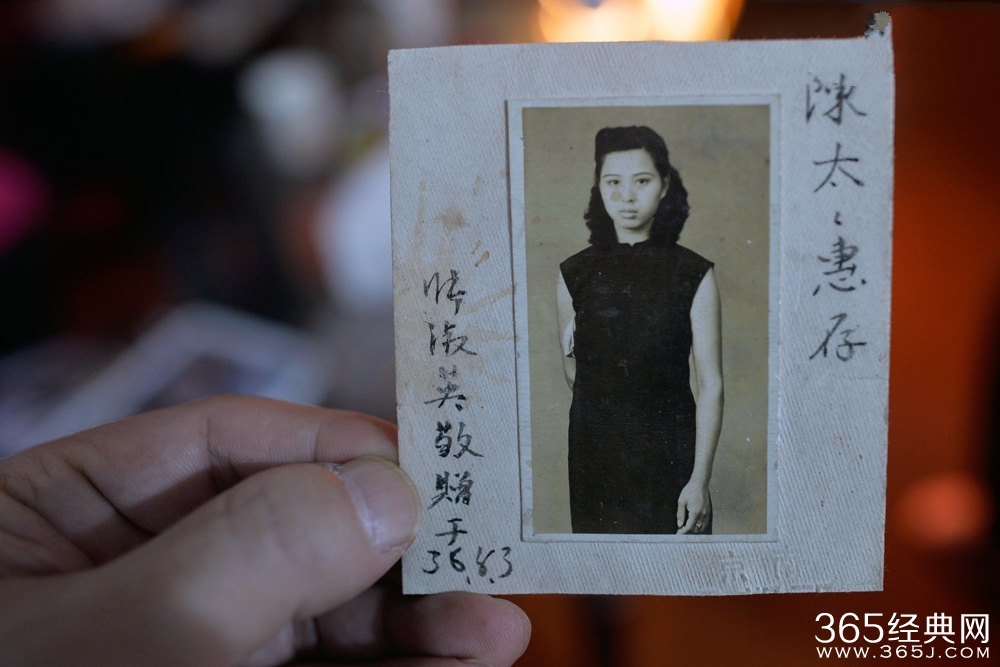 陳太〻惠存
淑英敬贈于
36.8.3
365经典网
www.365J.COM